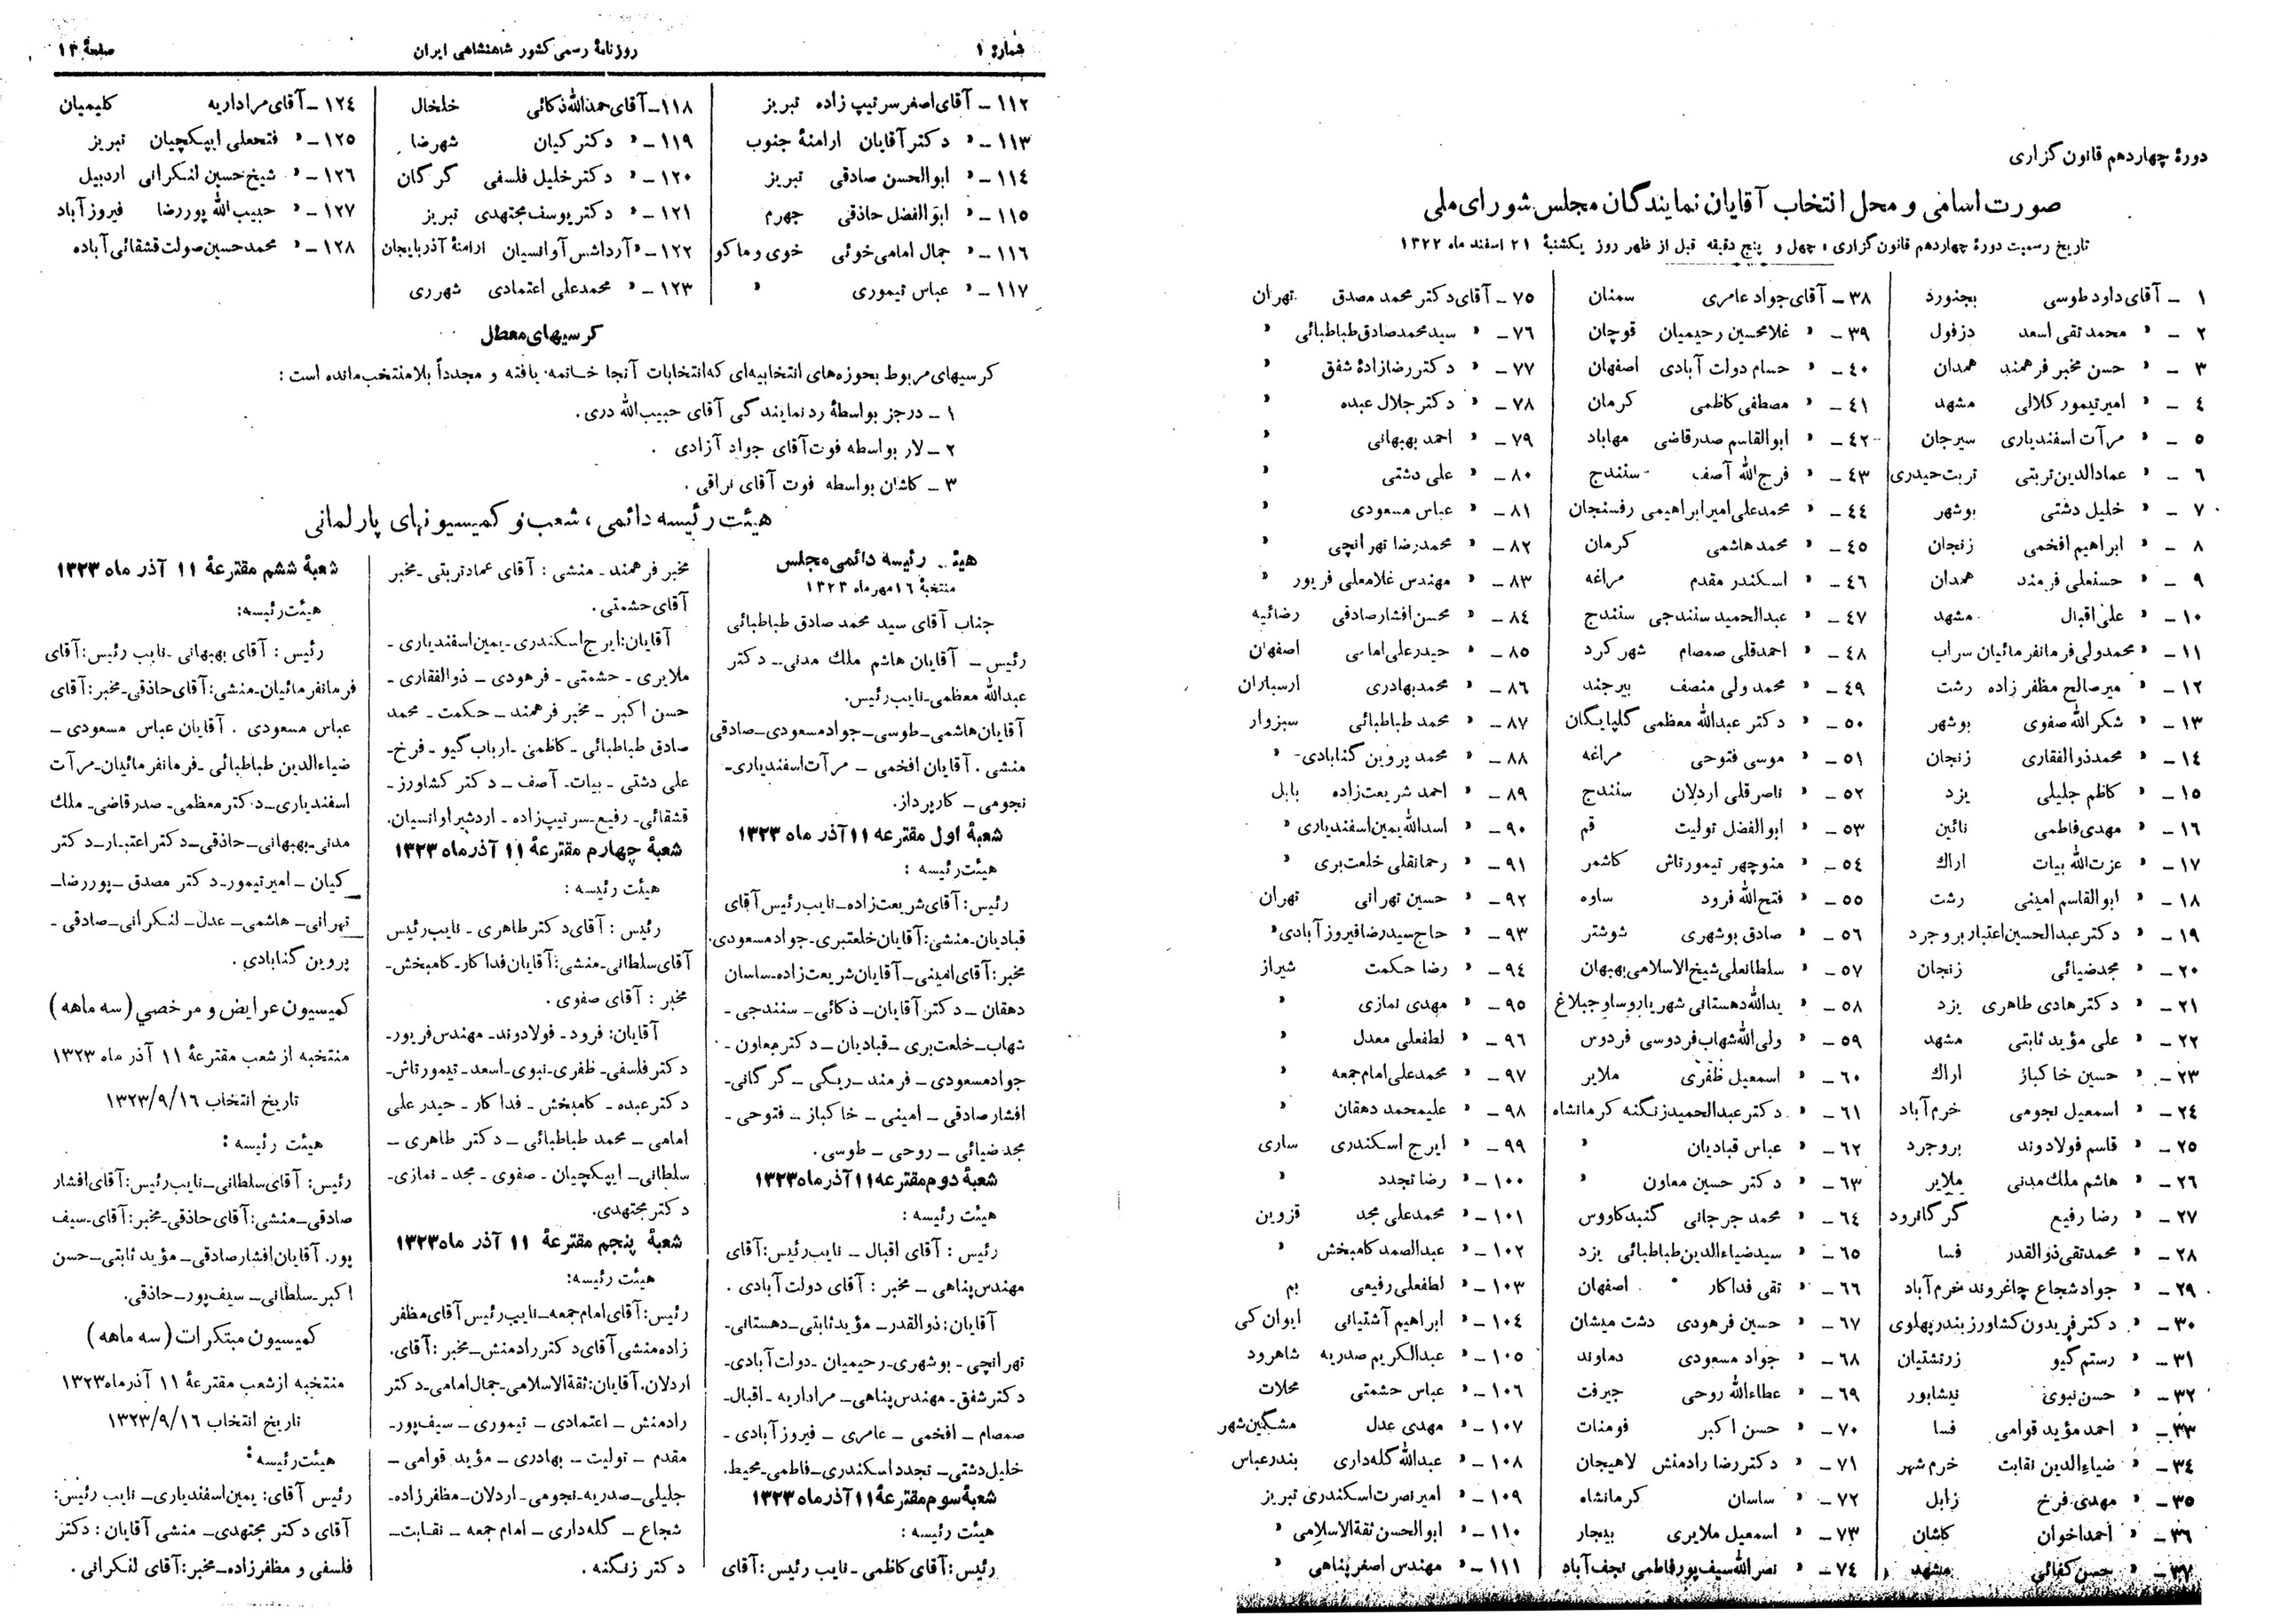 دورهٔ چهاردهم قانون گزاری
صورت اسامی و محل انتخاب آقایان نمایندگان مجلس شورای ملی
تاریخ رسمیت دورهٔ چهاردهم قانون گزاری ، چهل و پنج دقیقه قبل از ظهر روز یکشنبهٔ ۲۱ اسفند ماه ۱۳۲۲
۱ - آقای داود طوسی بجنورد
۲ - » محمد تقی اسعد دزفول
۳ - » حسن مخبر فرهمند همدان
۴ - » امیر تیمور کلالی مشهد
۵ - » مرآت اسفندیاری سیرجان
۶ - » عمادالدین تربتی تربت حیدری
۷ - » خلیل دشتی بوشهر
۸ - » ابراهیم افخمی زنجان
۹ - » حسنعلی فرمند همدان
۱۰ - » علی اقبال مشهد
۱۱ - » محمدولی فرمانفرمائیان سراب
۱۲ - » میرصالح مظفر زاده رشت
۱۳ - » شکرالله صفوی بوشهر
۱۴ - » محمد ذوالفقاری زنجان
۱۵ - » کاظم جلیلی یزد
۱۶ - » مهدی فاطمی نائین
۱۷ - » عزت الله بیات اراك
۱۸ - » ابوالقاسم امینی رشت
۱۹ - » دکتر عبدالحسین اعتبار بروجرد
۲۰ - » مجد ضیائی زنجان
۲۱ - » دکتر هادی طاهری یزد
۲۲ - » علی مؤید ثابتی مشهد
۲۳ - » حسین خاکباز اراك
۲۴ - » اسمعیل نجومی خرم آباد
۲۵ - » قاسم فولادوند بروجرد
۲۶ - » هاشم ملك مدنی ملایر
۲۷ - » رضا رفیع گرگانرود
۲۸ - » محمدتقی ذوالقدر فسا
۲۹ - » جواد شجاع چاغروند خرم آباد
۳۰ - » دکتر فریدون کشاورز بندر پهلوی
۳۱ - » رستم گیو زرتشتیان
۳۲ - » حسن نبوی نیشابور
۳۳ - » احمد مؤید قوامی فسا
۳۴ - » ضیاءالدین نقابت خرم شهر
۳۵ - » مهدی فرخ زابل
۳۶ - » احمد اخوان کاشان
۳۷ - » حسن کفائی مشهد
۳۸ - آقای جواد عامری سمنان
۳۹ - » غلامحسین رحیمیان قوچان
۴۰ - » حسام دولت آبادی اصفهان
۴۱ - » مصطفی کاظمی کرمان
۴۲ - » ابوالقاسم صدرقاضی مهاباد
۴۳ - » فرج الله آصف سنندج
۴۴ - » محمدعلی امیرابراهیمی رفسنجان
۴۵ - » محمد هاشمی کرمان
۴۶ - » اسکندر مقدم مراغه
۴۷ - » عبدالحمید سنندجی سنندج
۴۸ - » احمدقلی صمصام شهر کرد
۴۹ - » محمد ولی منصف بیرجند
۵۰ - » دکتر عبدالله معظمی گلپایگان
۵۱ - » موسی فتوحی مراغه
۵۲ - » ناصر قلی اردلان سنندج
۵۳ - » ابوالفضل تولیت قم
۵۴ - » منوچهر تیمورتاش کاشمر
۵۵ - » فتح الله فرود ساوه
۵۶ - » صادق بوشهری شوشتر
۵۷ - » سلطانعلی شیخ الاسلامی بهبهان
۵۸ - » یدالله دهستانی شهریار و ساوجبلاغ
۵۹ - » ولی الله شهاب فردوسی فردوس
۶۰ - » اسمعیل ظفری ملایر
۶۱ - » دکتر عبدالحمید زنگنه کرمانشاه
۶۲ - » عباس قبادیان »
۶۳ - » دکتر حسین معاون »
۶۴ - » محمد جرجانی گنبد کاووس
۶۵ - » سید ضیاءالدین طباطبائی یزد
۶۶ - » تقی فداکار اصفهان
۶۷ - » حسین فرهودی دشت میشان
۶۸ - » جواد مسعودی دماوند
۶۹ - » عطاءالله روحی جیرفت
۷۰ - » حسن اکبر فومنات
۷۱ - » دکتر رضا رادمنش لاهیجان
۷۲ - » ساسان کرمانشاه
۷۳ - » اسمعیل ملایری بیجار
۷۴ - » نصرالله سیف پور فاطمی نجف آباد
۷۵ - آقای دکتر محمد مصدق تهران
۷۶ - » سید محمد صادق طباطبائی »
۷۷ - » دکتر رضازادهٔ شفق »
۷۸ - » دکتر جلال عبده »
۷۹ - » احمد بهبهانی »
۸۰ - » علی دشتی »
۸۱ - » عباس مسعودی »
۸۲ - » محمدرضا تهرانچی »
۸۳ - » مهندس غلامعلی فریور »
۸۴ - » محسن افشار صادقی رضائیه
۸۵ - » حیدرعلی امامی اصفهان
۸۶ - » محمد بهادری ارسباران
۸۷ - » محمد طباطبائی سبزوار
۸۸ - » محمد پروین گنابادی »
۸۹ - » احمد شریعت زاده بابل
۹۰ - » اسدالله یمین اسفندیاری »
۹۱ - » رحمانقلی خلعت بری »
۹۲ - » حسین تهرانی تهران
۹۳ - » حاج سید رضا فیروز آبادی »
۹۴ - » رضا حکمت شیراز
۹۵ - » مهدی نمازی »
۹۶ - » لطفعلی معدل »
۹۷ - » محمدعلی امام جمعه »
۹۸ - » علیمحمد دهقان »
۹۹ - » ایرج اسکندری ساری
۱۰۰ - » رضا تجدد »
۱۰۱ - » محمدعلی مجد قزوین
۱۰۲ - » عبدالصمد کامبخش »
۱۰۳ - » لطفعلی رفیعی بم
۱۰۴ - » ابراهیم آشتیانی ایوان کی
۱۰۵ - » عبدالکریم صدریه شاهرود
۱۰۶ - » عباس حشمتی محلات
۱۰۷ - » مهدی عدل مشگین شهر
۱۰۸ - » عبدالله گله داری بندرعباس
۱۰۹ - » امیر نصرت اسکندری تبریز
۱۱۰ - » ابوالحسن ثقة الاسلامی »
۱۱۱ - » مهندس اصغر پناهی »
شمارهٔ ۱ روزنامهٔ رسمی کشور شاهنشاهی ایران صفحهٔ ۱۳
۱۱۲ - آقای اصغر سرتیپ زاده تبریز
۱۱۳ - » دکتر آقایان ارامنهٔ جنوب
۱۱۴ - » ابوالحسن صادقی تبریز
۱۱۵ - » ابوالفضل حاذقی جهرم
۱۱۶ - » جمال امامی خوئی خوی و ماکو
۱۱۷ - » عباس تیموری »
۱۱۸ - آقای حمدالله ذکائی خلخال
۱۱۹ - » دکتر کیان شهرضا
۱۲۰ - » دکتر خلیل فلسفی گرگان
۱۲۱ - » دکتر یوسف مجتهدی تبریز
۱۲۲ - » آرداشس آوانسیان ارامنهٔ آذربایجان
۱۲۳ - » محمدعلی اعتمادی شهرری
۱۲۴ - آقای مراد اریه کلیمیان
۱۲۵ - » فتحعلی ایپکچیان تبریز
۱۲۶ - » شیخ حسین لنکرانی اردبیل
۱۲۷ - » حبیب الله پوررضا فیروز آباد
۱۲۸ - » محمد حسین صولت قشقائی آباده
کرسیهای معطل
کرسیهای مربوط بحوزه های انتخابیه ای که انتخابات آنجا خاتمه یافته و مجدداً بلا منتخب مانده است :
۱ - درجز بواسطهٔ رد نمایندگی آقای حبیب الله دری .
۲ - لار بواسطه فوت آقای جواد آزادی .
۳ - کاشان بواسطه فوت آقای نراقی .
هیئت رئیسه دائمی ، شعب و کمیسیونهای پارلمانی
هیئت رئیسه دائمی مجلس
منتخبهٔ ۱۶ مهر ماه ۱۳۲۳
جناب آقای سید محمد صادق طباطبائی
رئیس - آقایان هاشم ملك مدنی - دکتر
عبدالله معظمی - نایب رئیس.
آقایان هاشمی - طوسی - جواد مسعودی - صادقی
منشی . آقایان افخمی - مرآت اسفندیاری -
نجومی - کارپرداز.
شعبهٔ اول مقترعه ۱۱ آذر ماه ۱۳۲۳
هیئت رئیسه :
رئیس : آقای شریعت زاده - نایب رئیس آقای
قبادیان - منشی : آقایان خلعتبری - جواد مسعودی.
مخبر : آقای امینی - آقایان شریعت زاده - ساسان
دهقان - دکتر آقایان - ذکائی - سنندجی -
شهاب - خلعت بری - قبادیان - دکتر معاون -
جواد مسعودی - فرمند - ریگی - گرگانی -
افشار صادقی - امینی - خاکباز - فتوحی -
مجد ضیائی - روحی - طوسی.
شعبهٔ دوم مقترعه ۱۱ آذر ماه ۱۳۲۳
هیئت رئیسه :
رئیس : آقای اقبال - نایب رئیس : آقای
مهندس پناهی - مخبر : آقای دولت آبادی .
آقایان : ذوالقدر - مؤید ثابتی - دهستانی -
تهرانچی - بوشهری - رحیمیان - دولت آبادی -
دکتر شفق - مهندس پناهی - مراد اریه - اقبال -
صمصام - افخمی - عامری - فیروز آبادی -
خلیل دشتی - تجدد اسکندری - فاطمی - محیط.
شعبهٔ سوم مقترعهٔ ۱۱ آذر ماه ۱۳۲۳
هیئت رئیسه :
رئیس : آقای کاظمی - نایب رئیس : آقای
مخبر فرهمند - منشی : آقای عماد تربتی - مخبر
آقای حشمتی .
آقایان : ایرج اسکندری - یمین اسفندیاری -
ملایری - حشمتی - فرهودی - ذوالفقاری -
حسن اکبر - مخبر فرهمند - حکمت - محمد
صادق طباطبائی - کاظمی - ارباب گیو - فرخ -
علی دشتی - بیات - آصف - دکتر کشاورز -
قشقائی - رفیع - سرتیپ زاده - اردشیر اوانسیان.
شعبهٔ چهارم مقترعهٔ ۱۱ آذر ماه ۱۳۲۳
هیئت رئیسه :
رئیس : آقای دکتر طاهری - نایب رئیس
آقای سلطانی - منشی : آقایان فداکار - کامبخش -
مخبر : آقای صفوی .
آقایان : فرود - فولادوند - مهندس فریور -
دکتر فلسفی - ظفری - نبوی - اسعد - تیمورتاش -
دکتر عبده - کامبخش - فداکار - حیدر علی
امامی - محمد طباطبائی - دکتر طاهری -
سلطانی - ایپکچیان - صفوی - مجد - نمازی -
دکتر مجتهدی.
شعبهٔ پنجم مقترعهٔ ۱۱ آذر ماه ۱۳۲۳
هیئت رئیسه :
رئیس : آقای امام جمعه - نایب رئیس آقای مظفر
زاده منشی آقای دکتر رادمنش - مخبر : آقای.
اردلان. آقایان : ثقة الاسلامی - جمال امامی - دکتر
رادمنش - اعتمادی - تیموری - سیف پور -
مقدم - تولیت - بهادری - مؤید قوامی -
جلیلی - صدریه - نجومی - اردلان - مظفر زاده -
شجاع - گله داری - امام جمعه - نقابت -
دکتر زنگنه .
شعبهٔ ششم مقترعهٔ ۱۱ آذر ماه ۱۳۲۳
هیئت رئیسه :
رئیس : آقای بهبهانی - نایب رئیس : آقای
فرمانفرمائیان - منشی : آقای حاذقی - مخبر : آقای
عباس مسعودی . آقایان عباس مسعودی -
ضیاءالدین طباطبائی - فرمانفرمائیان - مرآت
اسفندیاری - دکتر معظمی - صدر قاضی - ملك
مدنی - بهبهانی - حاذقی - دکتر اعتبار - دکتر
کیان - امیر تیمور - دکتر مصدق - پوررضا -
تهرانی - هاشمی - عدل - لنکرانی - صادقی -
پروین گنابادی .
کمیسیون عرایض و مرخصی (سه ماهه)
منتخبه از شعب مقترعهٔ ۱۱ آذر ماه ۱۳۲۳
تاریخ انتخاب ۱۳۲۳/۹/۱۶
هیئت رئیسه :
رئیس : آقای سلطانی - نایب رئیس : آقای افشار
صادقی - منشی : آقای حاذقی - مخبر : آقای سیف
پور. آقایان افشار صادقی - مؤید ثابتی - حسن
اکبر - سلطانی - سیف پور - حاذقی.
کمیسیون مبتکرات (سه ماهه)
منتخبه از شعب مقترعهٔ ۱۱ آذر ماه ۱۳۲۳
تاریخ انتخاب ۱۳۲۳/۹/۱۶
هیئت رئیسه :
رئیس آقای : یمین اسفندیاری - نایب رئیس :
آقای دکتر مجتهدی - منشی آقایان : دکتر
فلسفی و مظفر زاده - مخبر : آقای لنکرانی .